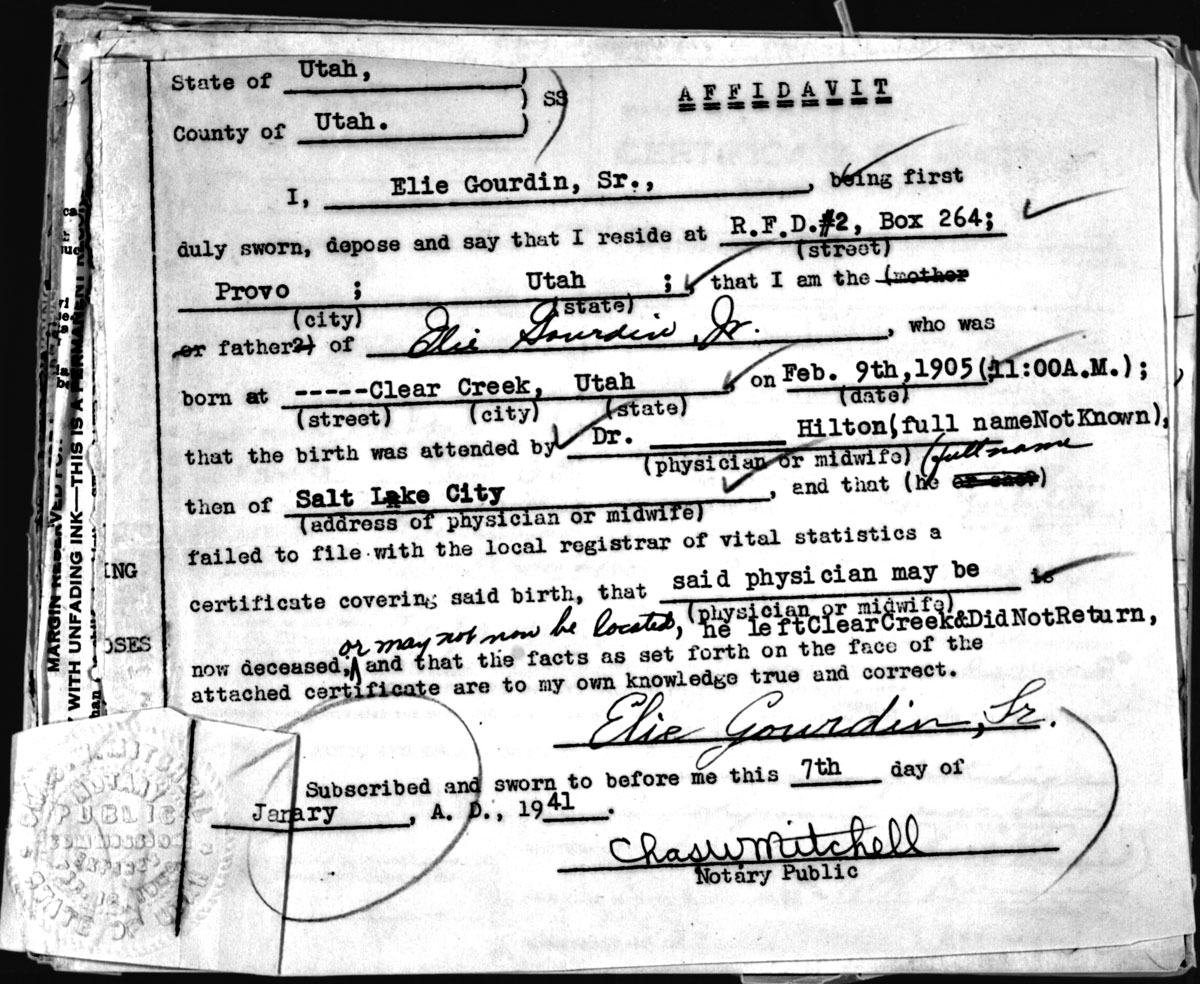 State of Utah, )
) SS
County of Utah. )
AFFIDAVIT
I, Elie Gourdin, Sr., , being first
duly sworn, depose and say that I reside at R.F.D.#2, Box 264;
(street)
Provo ; Utah ; that I am the (mother
(city) (state)
or father) of Elie Gourdin, Jr. , who was
born at -----Clear Creek, Utah , on Feb. 9th,1905(11:00A.M.);
(street) (city) (state) (date)
that the birth was attended by Dr. Hilton(full nameNotKnown),
(physician or midwife) (full name
then of Salt Lake City , and that (he or she)
(address of physician or midwife)
failed to file with the local registrar of vital statistics a
certificate covering said birth, that said physician may be is
(physician or midwife)
or may not now be located, he leftClearCreek&DidNotReturn,
now deceased, and that the facts as set forth on the face of the
attached certificate are to my own knowledge true and correct.
Elie Gourdin, Sr.
Subscribed and sworn to before me this 7th day of
Janary , A. D., 1941 .
Chas W Mitchell
Notary Public
MARGIN RESERVED FOR
WITH UNFADING INK—THIS IS A PERMANENT
ING
OSES
NOTARY
PUBLIC
COMMISSION
EXPIRES